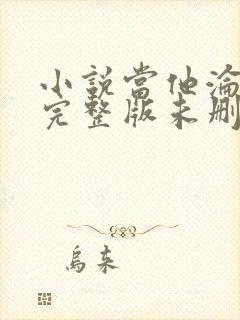 小說當他淪
完整版未刪
烏来